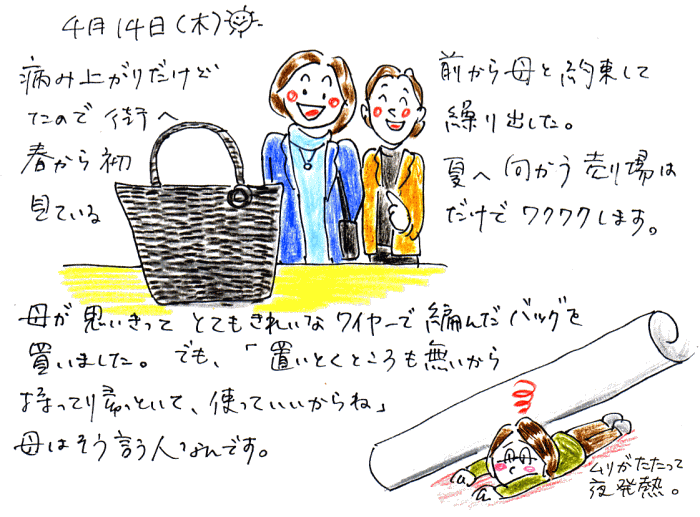 4月14日(木)
病み上がりだけど
前から母と約束して
たので街へ
繰り出した。
春から初
夏へ向かう売り場は
見ている
だけでワクワクします。
母が思いきってとてもきれいなワイヤーで編んだバッグを
買いました。でも、「置いとくところも無いから
持ってり帰っといて、使っていいからね」
母はそう言う人なんです。
ムリがたたって
夜発熱。